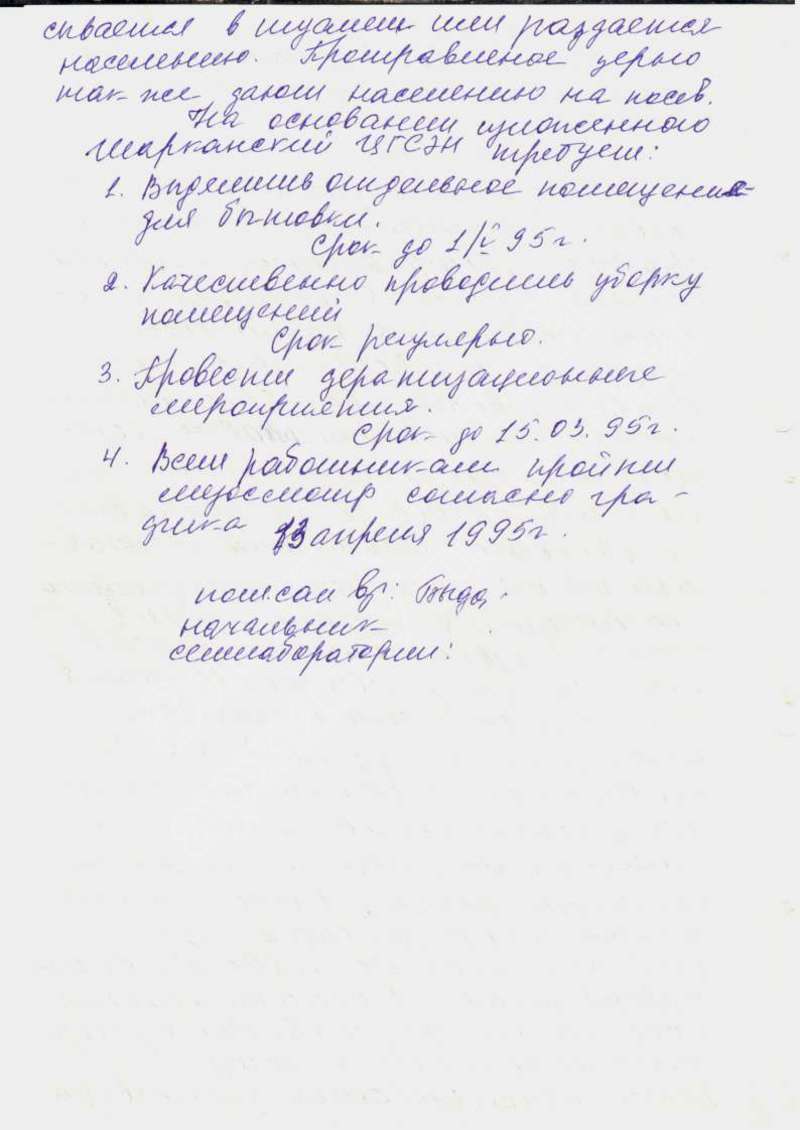 сывается в туалет или раздается
населению. Протравленое зерно
так же дают населению на посев.
На основании изложенного
Шарканский ЦГСЭН требует:
1. Выделить отдельное помещение
для бытовки.
Срок до 1/V 95 г.
2. Качественно проводить уборку
помещений
Срок регулярно.
3. Провести дератизационные
мероприятия.
Срок до 15.03.95г.
4. Всем работникам пройти
медосмотр согласно гра-
фика 13 апреля 1995г.
вр:
начальник
семлаборатории: